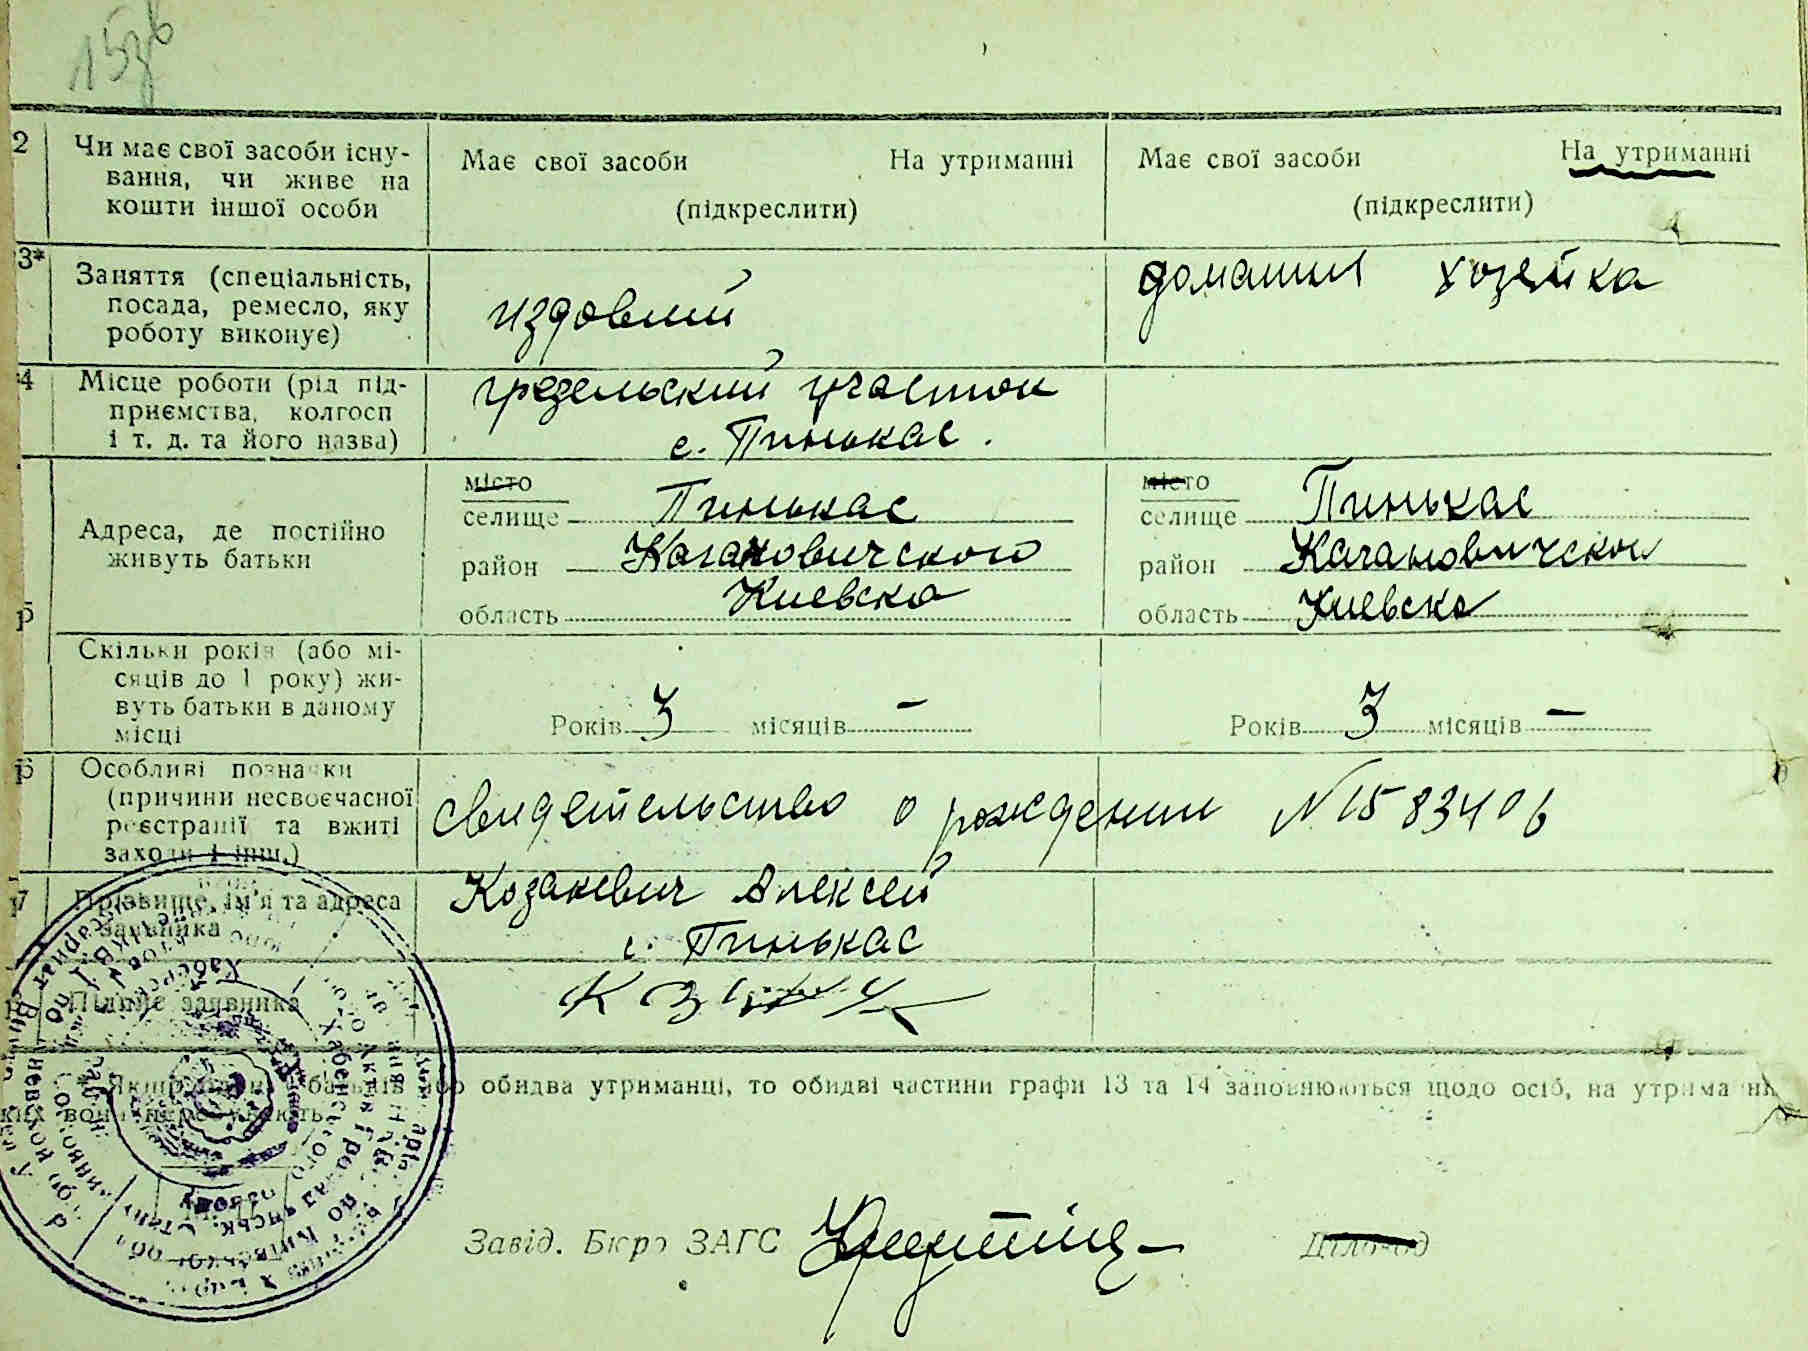 2 Чи має свої засоби існу-
вання, чи живе на
кошти іншої особи
Має свої засоби На утриманні
(підкреслити)
Має свої засоби На утриманні
(підкреслити)
3* Заняття (спеціальність,
посада, ремесло, яку
роботу виконує)
издовший
домашня хозейка
4 Місце роботи (рід під-
приємства, колгосп
і т. д. та його назва)
участок
с. Пинькас.
Адреса, де постійно
живуть батьки
місто
селище Пинькас
район Кагановичского
область Киевска
місто
селище Пинькас
район Кагановичског
область Киевска
Скільки років (або мі-
сяців до 1 року) жи-
вуть батьки в даному
місці
Років 3 місяців —
Років 3 місяців —
Особливі позначки
(причини несвоєчасної
реєстрації та вжиті
заходи і інш.)
свидетельство о рождении N 1583406
7 Прізвище, ім'я та адреса
заявника
Козакевич Алексей
с. Пинькас
Підпис заявника
* Якщо обидва утриманці, то обидві частини графи 13 та 14 заповнюються щодо осіб, на утриманні
яких вони перебувають.
Завід. Бюро ЗАГС
Діловод